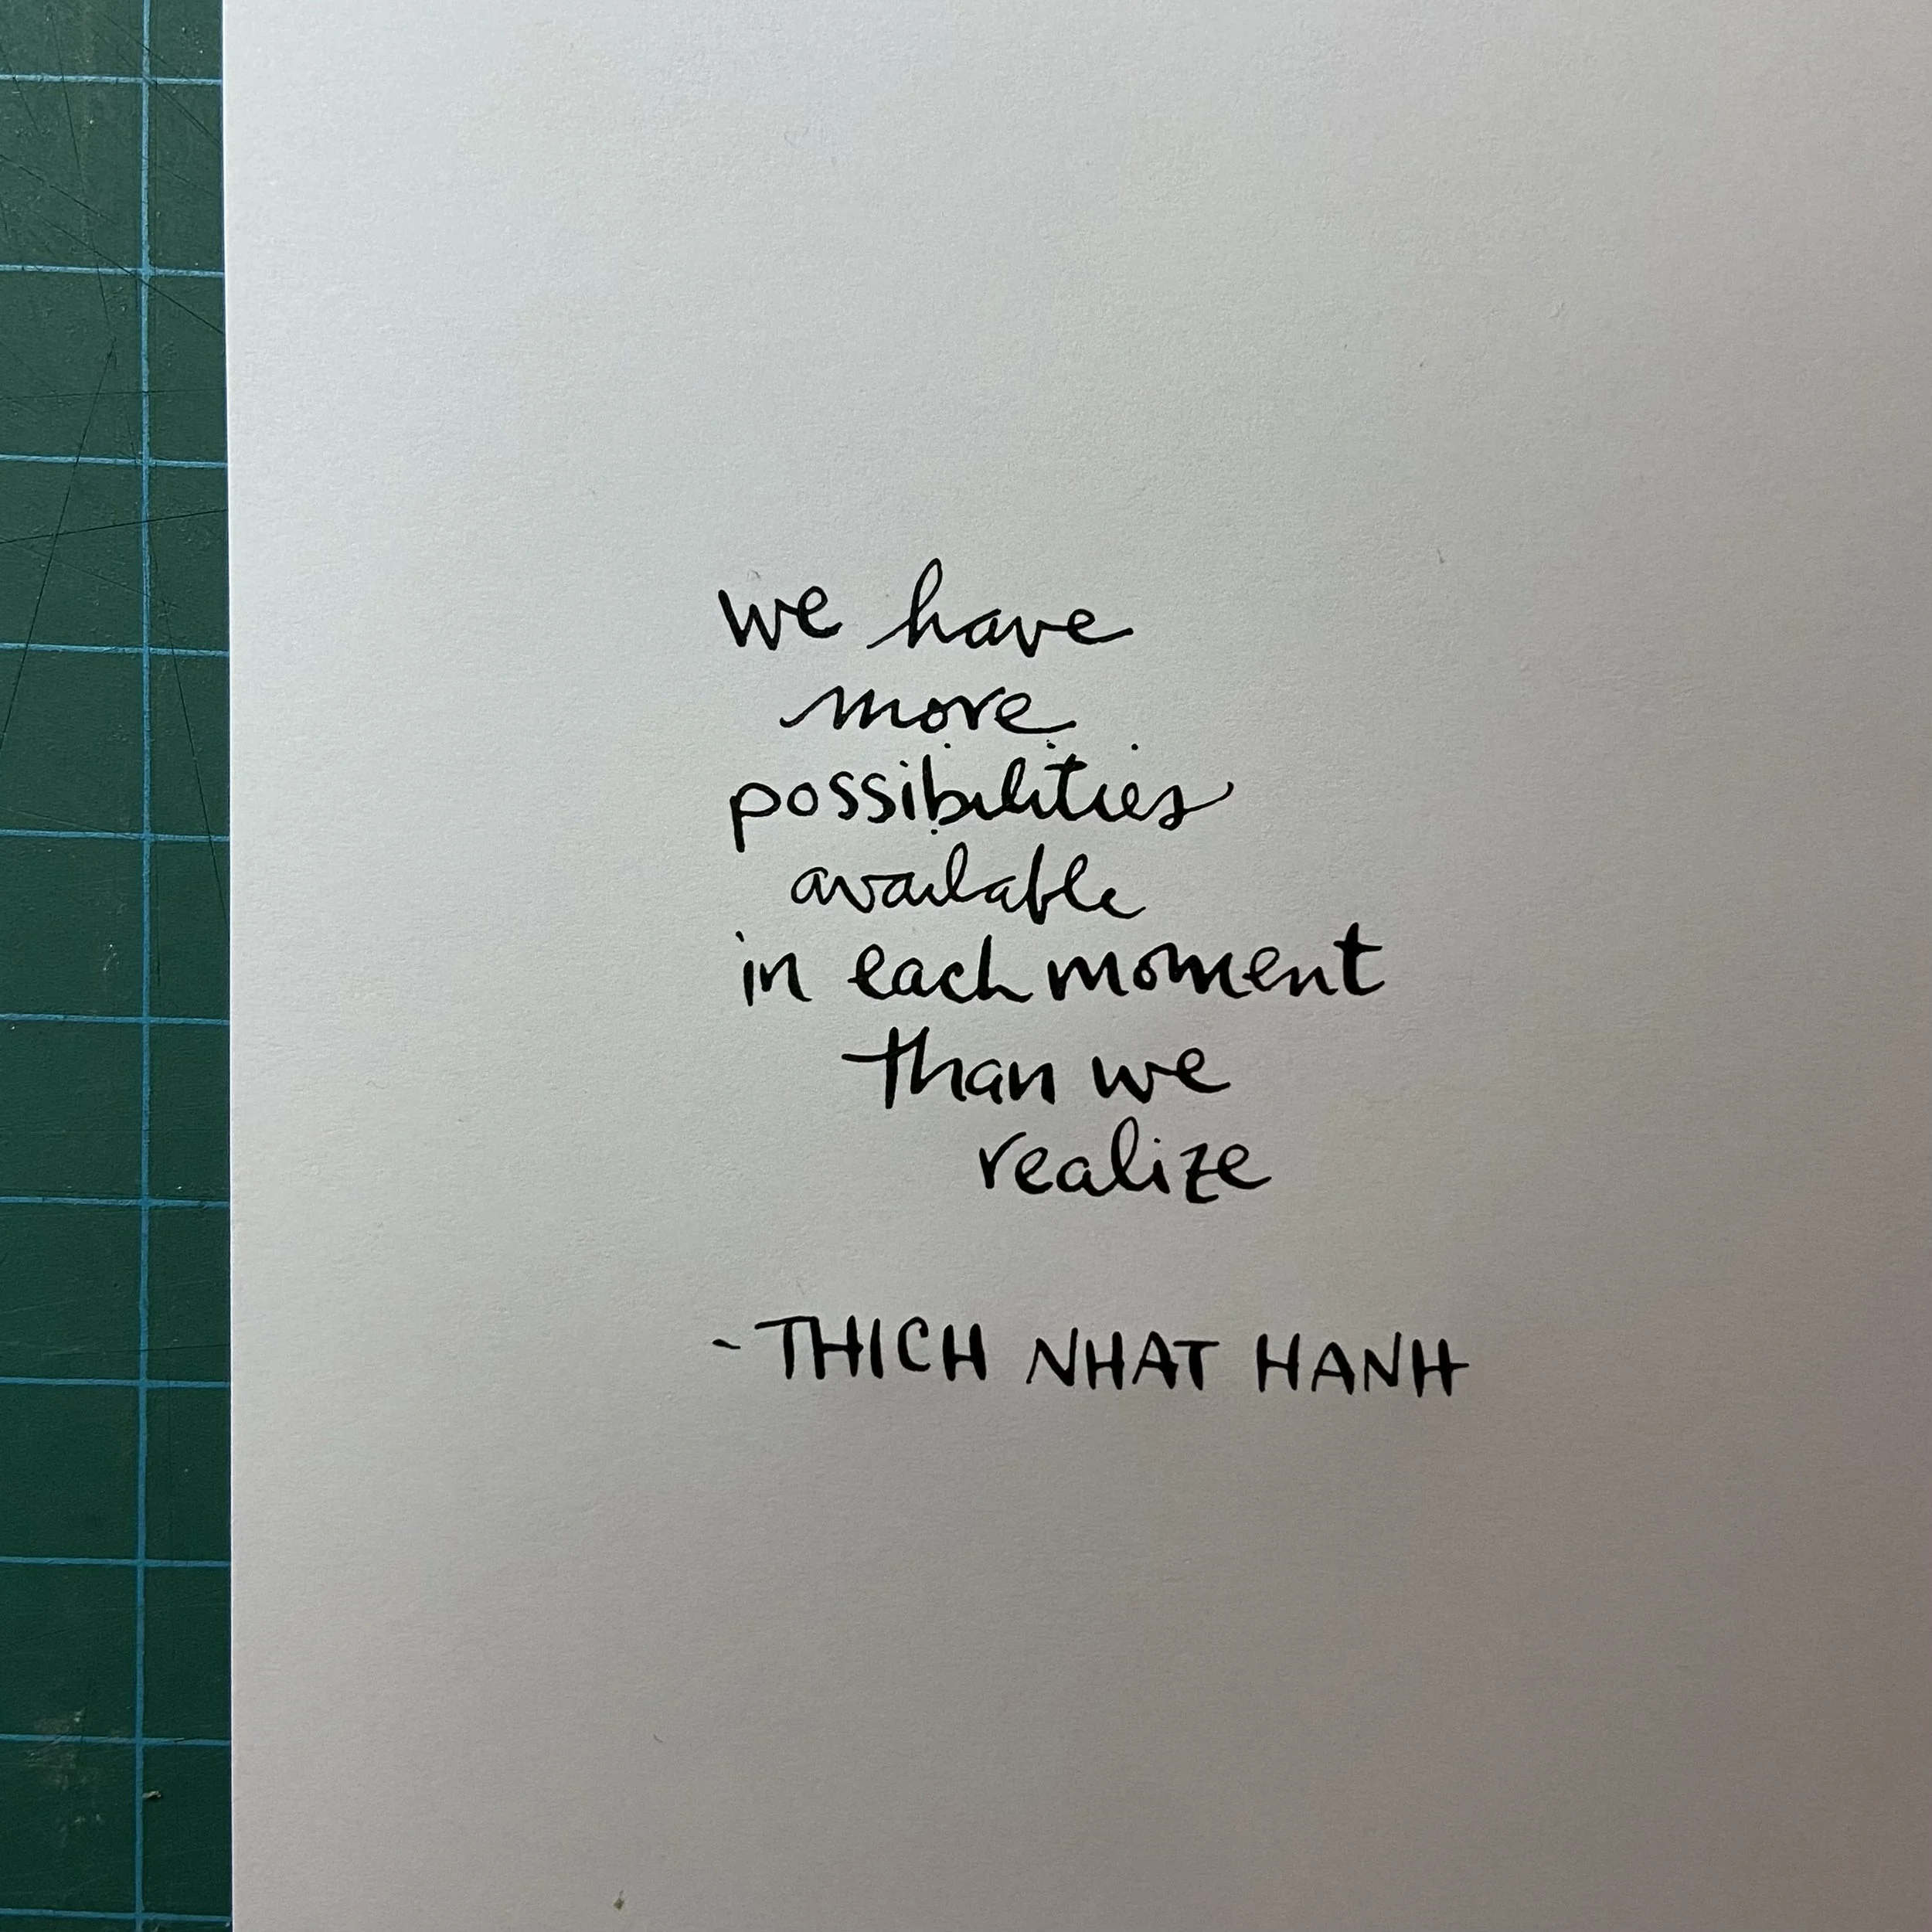 we have
more
possibilities
available
in each moment
than we
realize
- THICH NHAT HANH